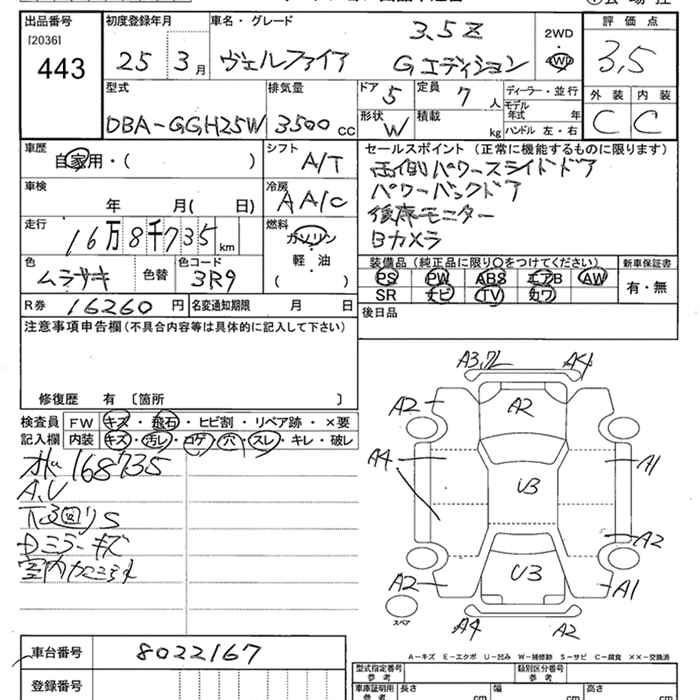 出品番号 初度登録年月 車名・グレード 評価点
[2036]
443
25 3月
ヴェルファイア
3.5Z
Gエディション
2WD
4WD
3.5
型式 排気量
ドア 5 定員 7人 ディーラー・並行 外装 内装
DBA-GGH25W 3500cc
形状 W 積載 kg モデル年式 年 C C
ハンドル 左・右
車歴 シフト セールスポイント (正常に機能するものに限ります)
自家用・( )
A/T
両側パワースライドドア
車検 冷房
パワーバックドア
年 月( 日)
AA/C
後席モニター
走行 燃料
16万8千735km
ガソリン
Bカメラ
軽・油
( )
色 色替 色コード 装備品 (純正品に限り○をつけてください) 新車保証書
ムラサキ 3R9
PS PW ABS エアB AW 有・無
SR ナビ TV カワ
R券 16260円 名変通知期限 月 日 後日品
注意事項申告欄 (不具合内容等は具体的に記入して下さい)
修復歴 有 〔箇所 〕
検査員 FW キズ・飛石・ヒビ割・リペア跡・×要
記入欄 内装 キズ・汚レ・コゲ・穴・スレ・キレ・破レ
168735
A,U
下回りS
Dミラーキズ
A3,7L A4
A2 A2
A4 A1
U3
A2
A2 U3 A1
スペア
A4 A2
A-キズ E-エクボ U-凹み W-補修跡 S-サビ C-腐食 ××-交換済
車台番号 8022167
登録番号
型式指定番号 参考 類別区分番号 参考
車庫証明用 参考 長さ cm 幅 cm 高さ cm